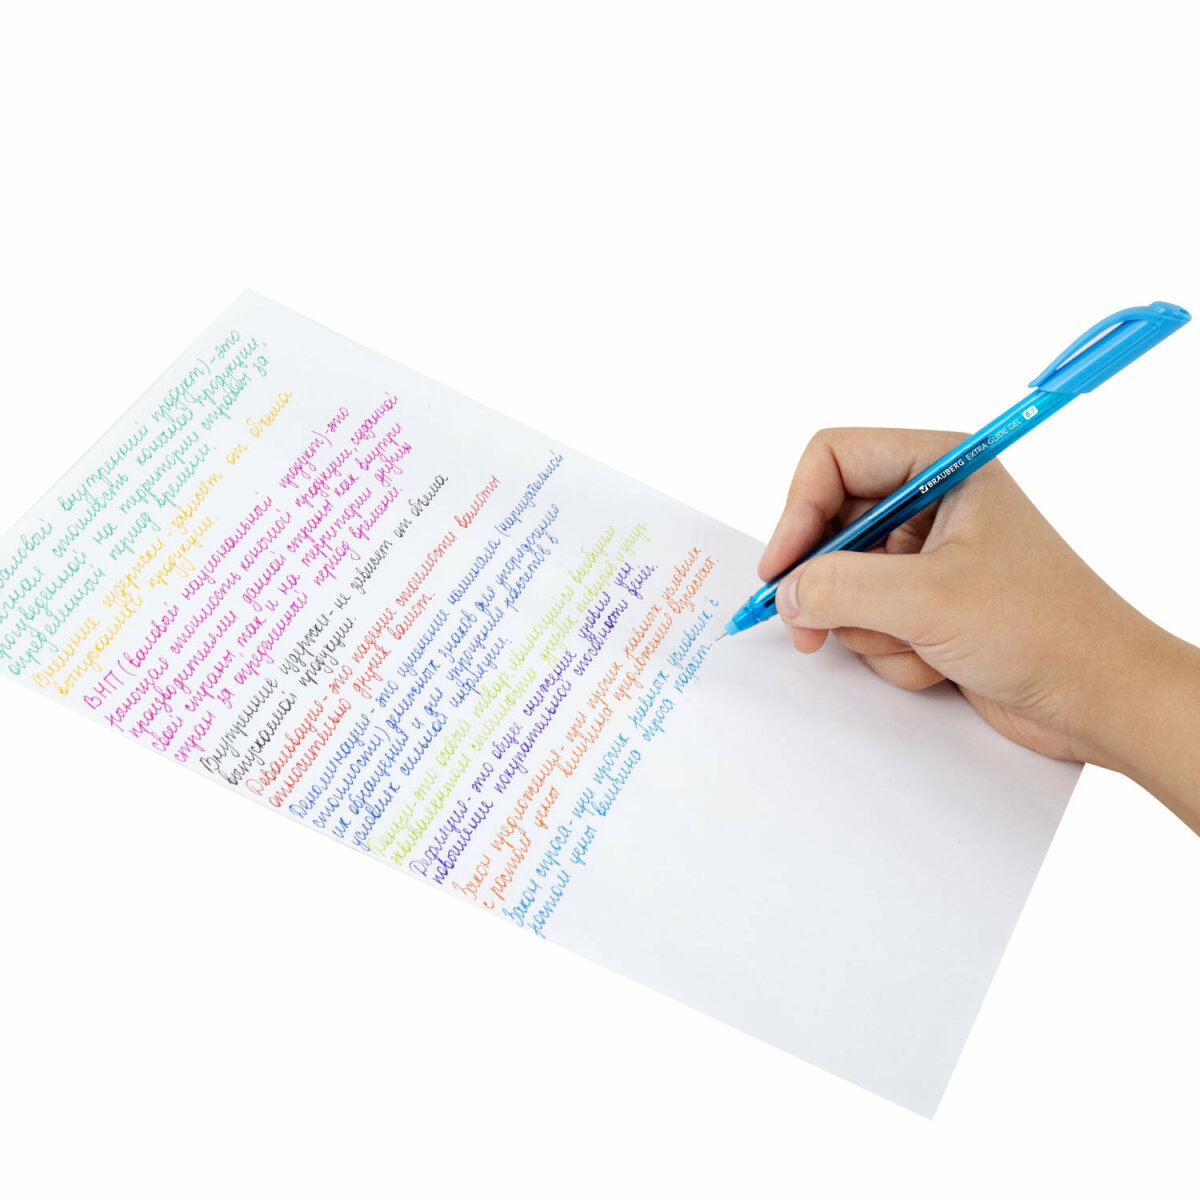 внутренний продукт) - это
стоимость конечной продукции,
на территории страны за
определенный период времени.
Внешние издержки - зависят от объема
выпускаемой продукции.
ВНП (валовый национальный продукт) - это
стоимость конечной продукции, созданной
производителями данной страны как внутри
своей страны, так и на территории других
стран за определенный период времени.
Внутренние издержки - не зависят от объема
выпускаемой продукции.
Девальвация - это падение стоимости валюты
относительно других валют.
Деноминация - это уменьшение номинала (нарицательной
стоимости) денежных знаков для упорядочения
их обращения и для упрощения расчетов в
условиях сильной инфляции.
Деньги - это особый товар, являющийся всеобщим
эквивалентом стоимости других товаров и услуг
Дефляция - это общее снижение уровня цен
повышение покупательной способности денег.
Закон предложения - при прочих равных условиях
с ростом цены величина предложения возрастает.
Закон спроса - при прочих равных условиях с
ростом цены величина спроса падает.
BRAUBERG EXTRA GLIDE GEL 0.7